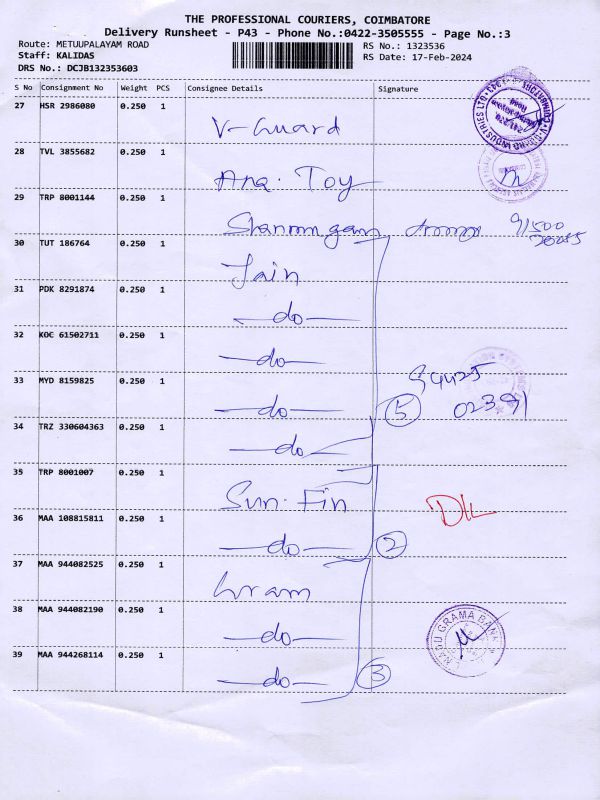 THE PROFESSIONAL COURIERS, COIMBATORE
Delivery Runsheet - P43 - Phone No.:0422-3505555 - Page No.:3
Route: METUUPALAYAM ROAD
RS No.: 1323536
Staff: KALIDAS
RS Date: 17-Feb-2024
DRS No.: DCJB132353603
S No Consignment No Weight PCS Consignee Details Signature
27 HSR 2986080 0.250 1 V-Guard
28 TVL 3855682 0.250 1 Ana. Toy
29 TRP 8001144 0.250 1 Shanmugam 91500
30 TUT 186764 0.250 1 Jain
31 PDK 8291874 0.250 1 -do-
32 KOC 61502711 0.250 1 -do-
33 MYD 8159825 0.250 1 -do- 5 94425 02391
34 TRZ 330604363 0.250 1 -do-
35 TRP 8001007 0.250 1 Sun. Fin
36 MAA 108815811 0.250 1 -do- 2
37 MAA 944082525 0.250 1 Gram
38 MAA 944082190 0.250 1 -do-
NADU GRAMA BANK
39 MAA 944268114 0.250 1 -do- 3